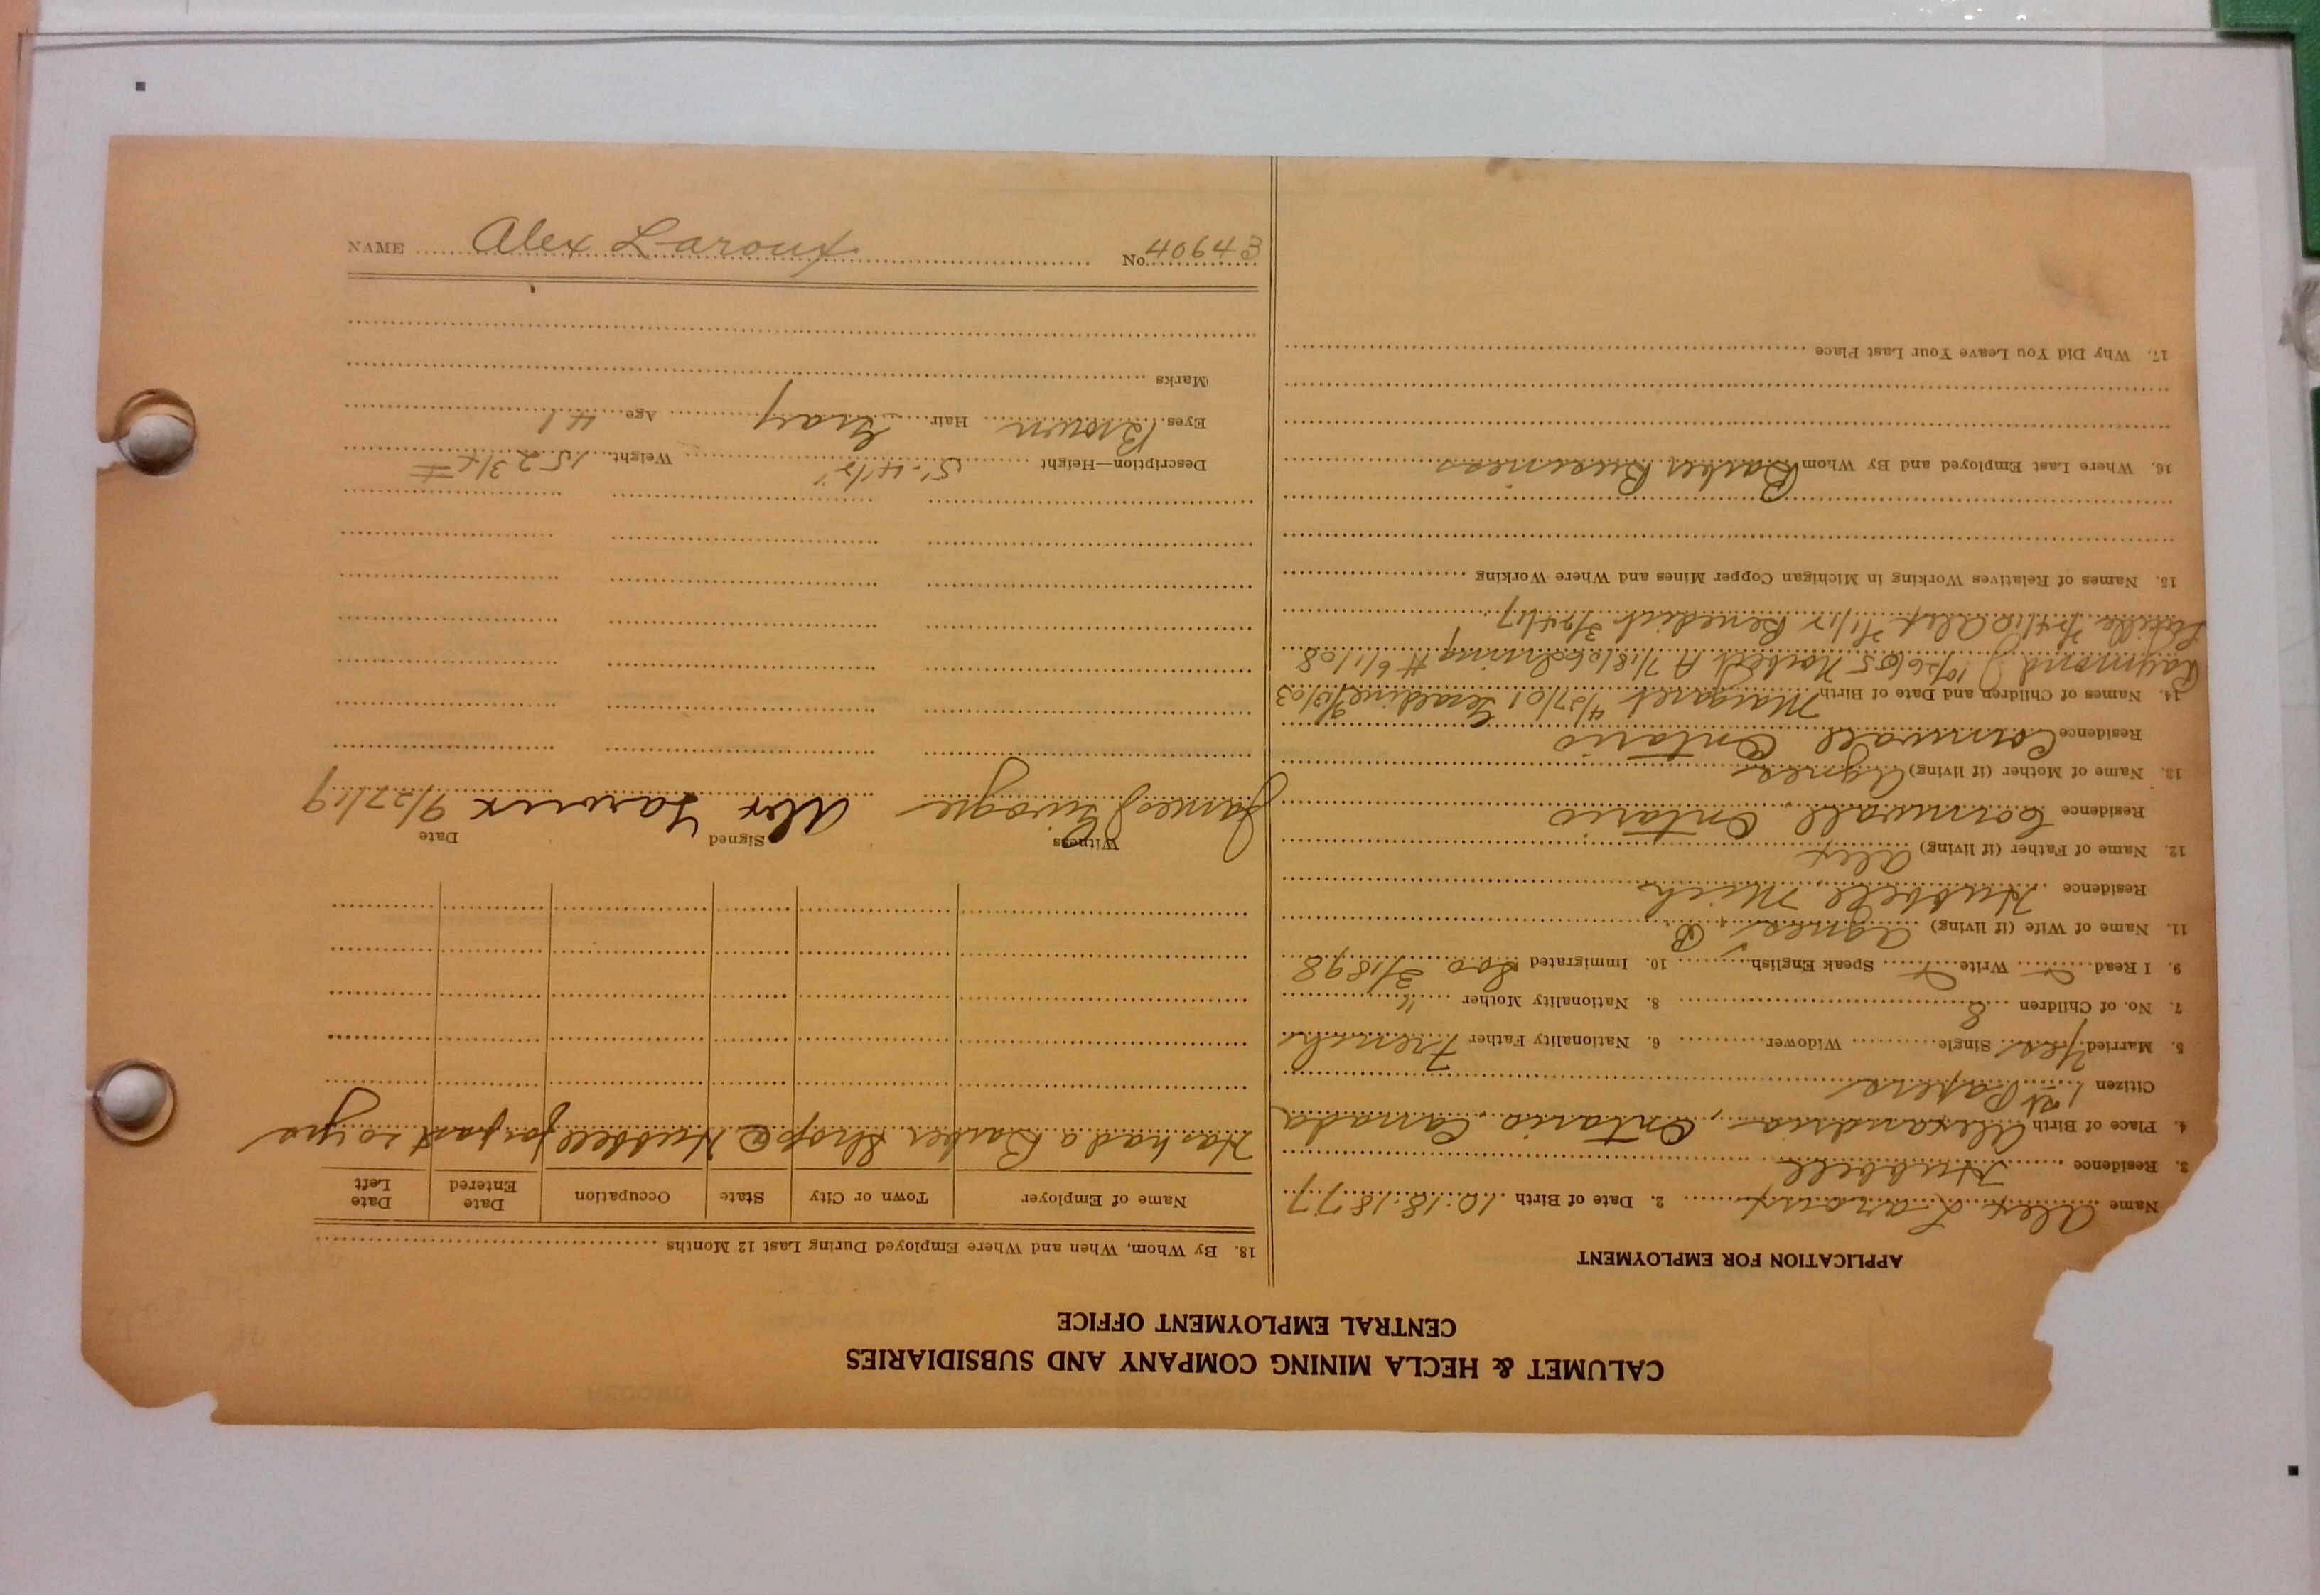 CALUMET & HECLA MINING COMPANY AND SUBSIDIARIES
CENTRAL EMPLOYMENT OFFICE
APPLICATION FOR EMPLOYMENT
Name Alex Laroux 2. Date of Birth 10.18.1877
3. Residence Hubbell
4. Place of Birth Alexandria, Ontario, Canada
Citizen 1st Papers
5. Married Yes Single Widower 6. Nationality Father French
7. No. of Children 8 8. Nationality Mother "
9. I Read Write Speak English 10. Immigrated Soo 3/1898
11. Name of Wife (if living) Agnes B
Residence Hubbell, Mich.
12. Name of Father (if living) Alex
Residence Cornwall, Ontario
13. Name of Mother (if living) Agnes
Residence Cornwall Ontario
14. Names of Children and Date of Birth Margaret 4/27/01 Geraldine 9/12/03
Raymond J 10/26/05 Norbert A 7/18/06 Irving H 6/1/08
Alex Benedict 3/24/17
15. Names of Relatives Working in Michigan Copper Mines and Where Working
16. Where Last Employed and By Whom Barber Business
17. Why Did You Leave Your Last Place
18. By Whom, When and Where Employed During Last 12 Months
Name of Employer Town or City State Occupation Date Entered Date Left
Has had a Barber Shop @ Hubbell for past 20 yrs
Witness Signed Date
James Alex Laroux 9/27/19
Description—Height 5'-4 1/2" Weight 152 3/4 #
Eyes Brown Hair Gray Age 41
Marks
NAME Alex Laroux No. 40643